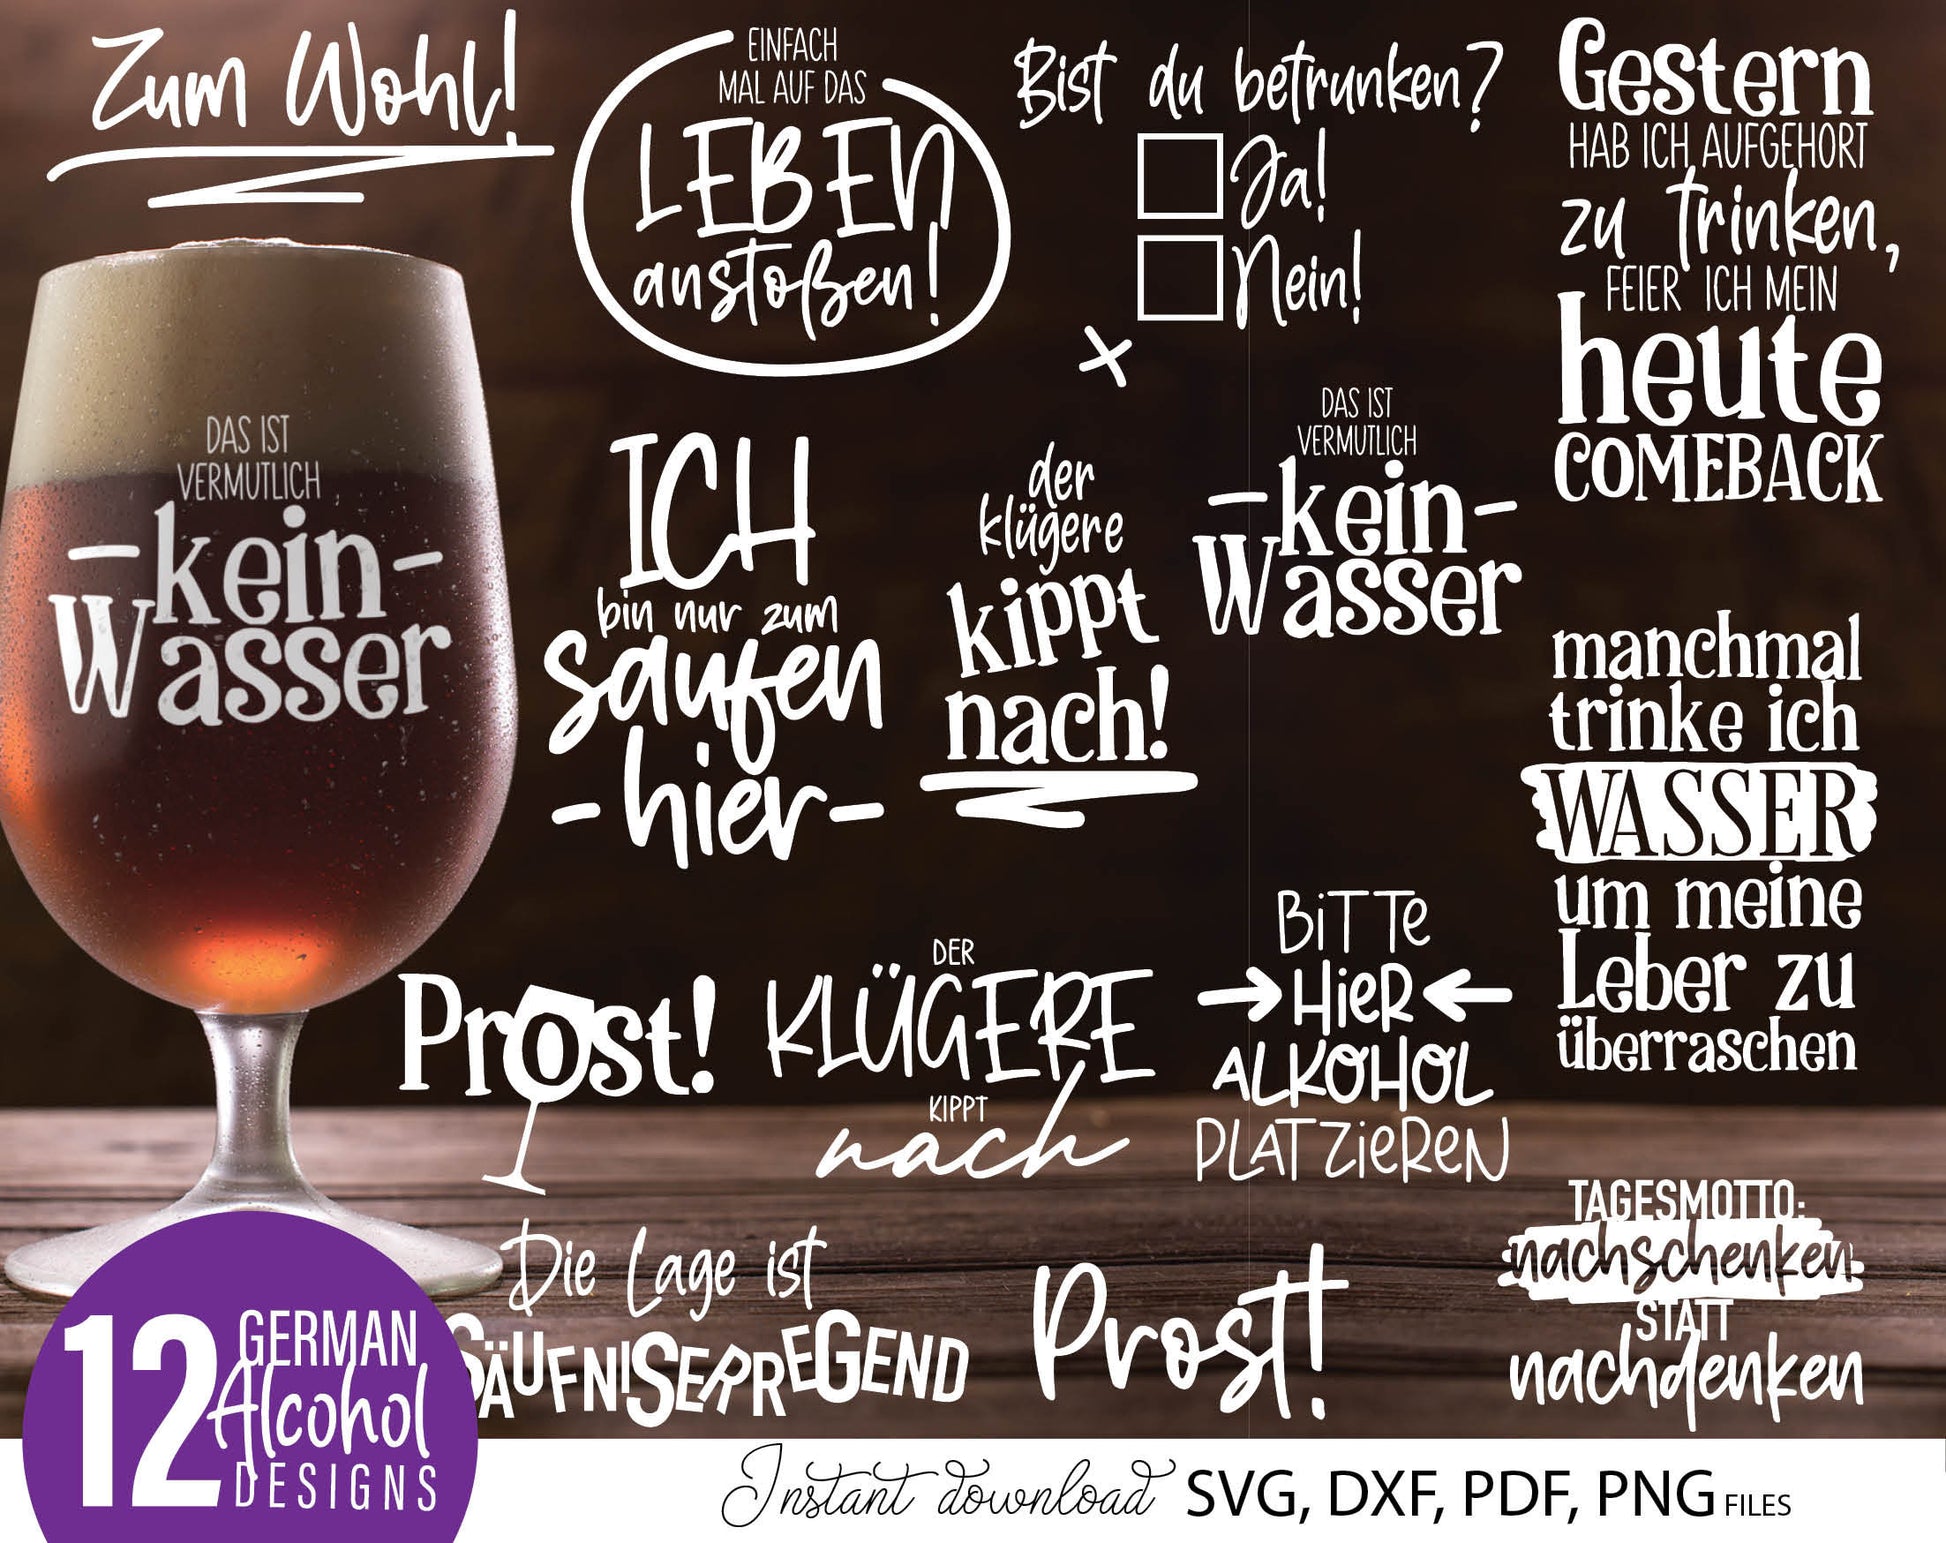 Zum Wohl!
EINFACH
MAL AUF DAS
LEBEN
anstoßen!
Bist du betrunken?
Ja!
Nein!
x
Gestern
HAB ICH AUFGEHORT
zu trinken,
FEIER ICH MEIN
heute
COMEBACK
DAS IST
VERMUTLICH
-kein-
Wasser
ICH
bin nur zum
saufen
-hier-
der
klügere
kippt
nach!
DAS IST
VERMUTLICH
-kein-
Wasser
manchmal
trinke ich
WASSER
um meine
Leber zu
überraschen
Prost!
DER
KLÜGERE
KIPPT
nach
BiTTe
HieR
ALKOHOL
PLATZieReN
Die Lage ist
SÄUFNISERREGEND
Prost!
TAGESMOTTO:
nachschenken
STATT
nachdenken
12 GERMAN
Alcohol
DESIGNS
Instant download SVG, DXF, PDF, PNG FILES